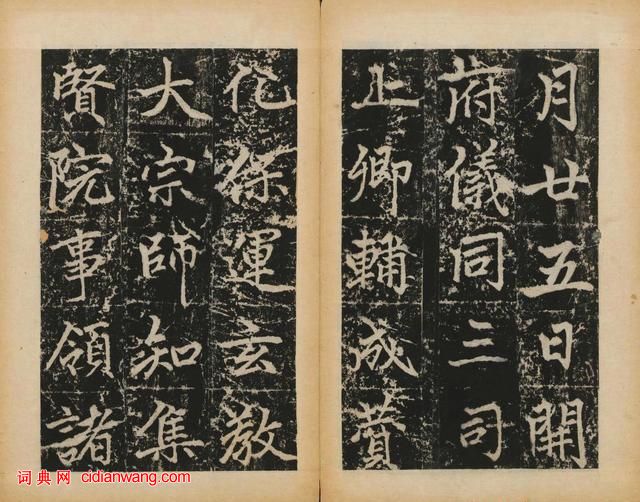 月廿五日開
府儀同三司
上卿輔成贊
化保運玄教
大宗師知集
賢院事領諸
词典网 cidianwang.com